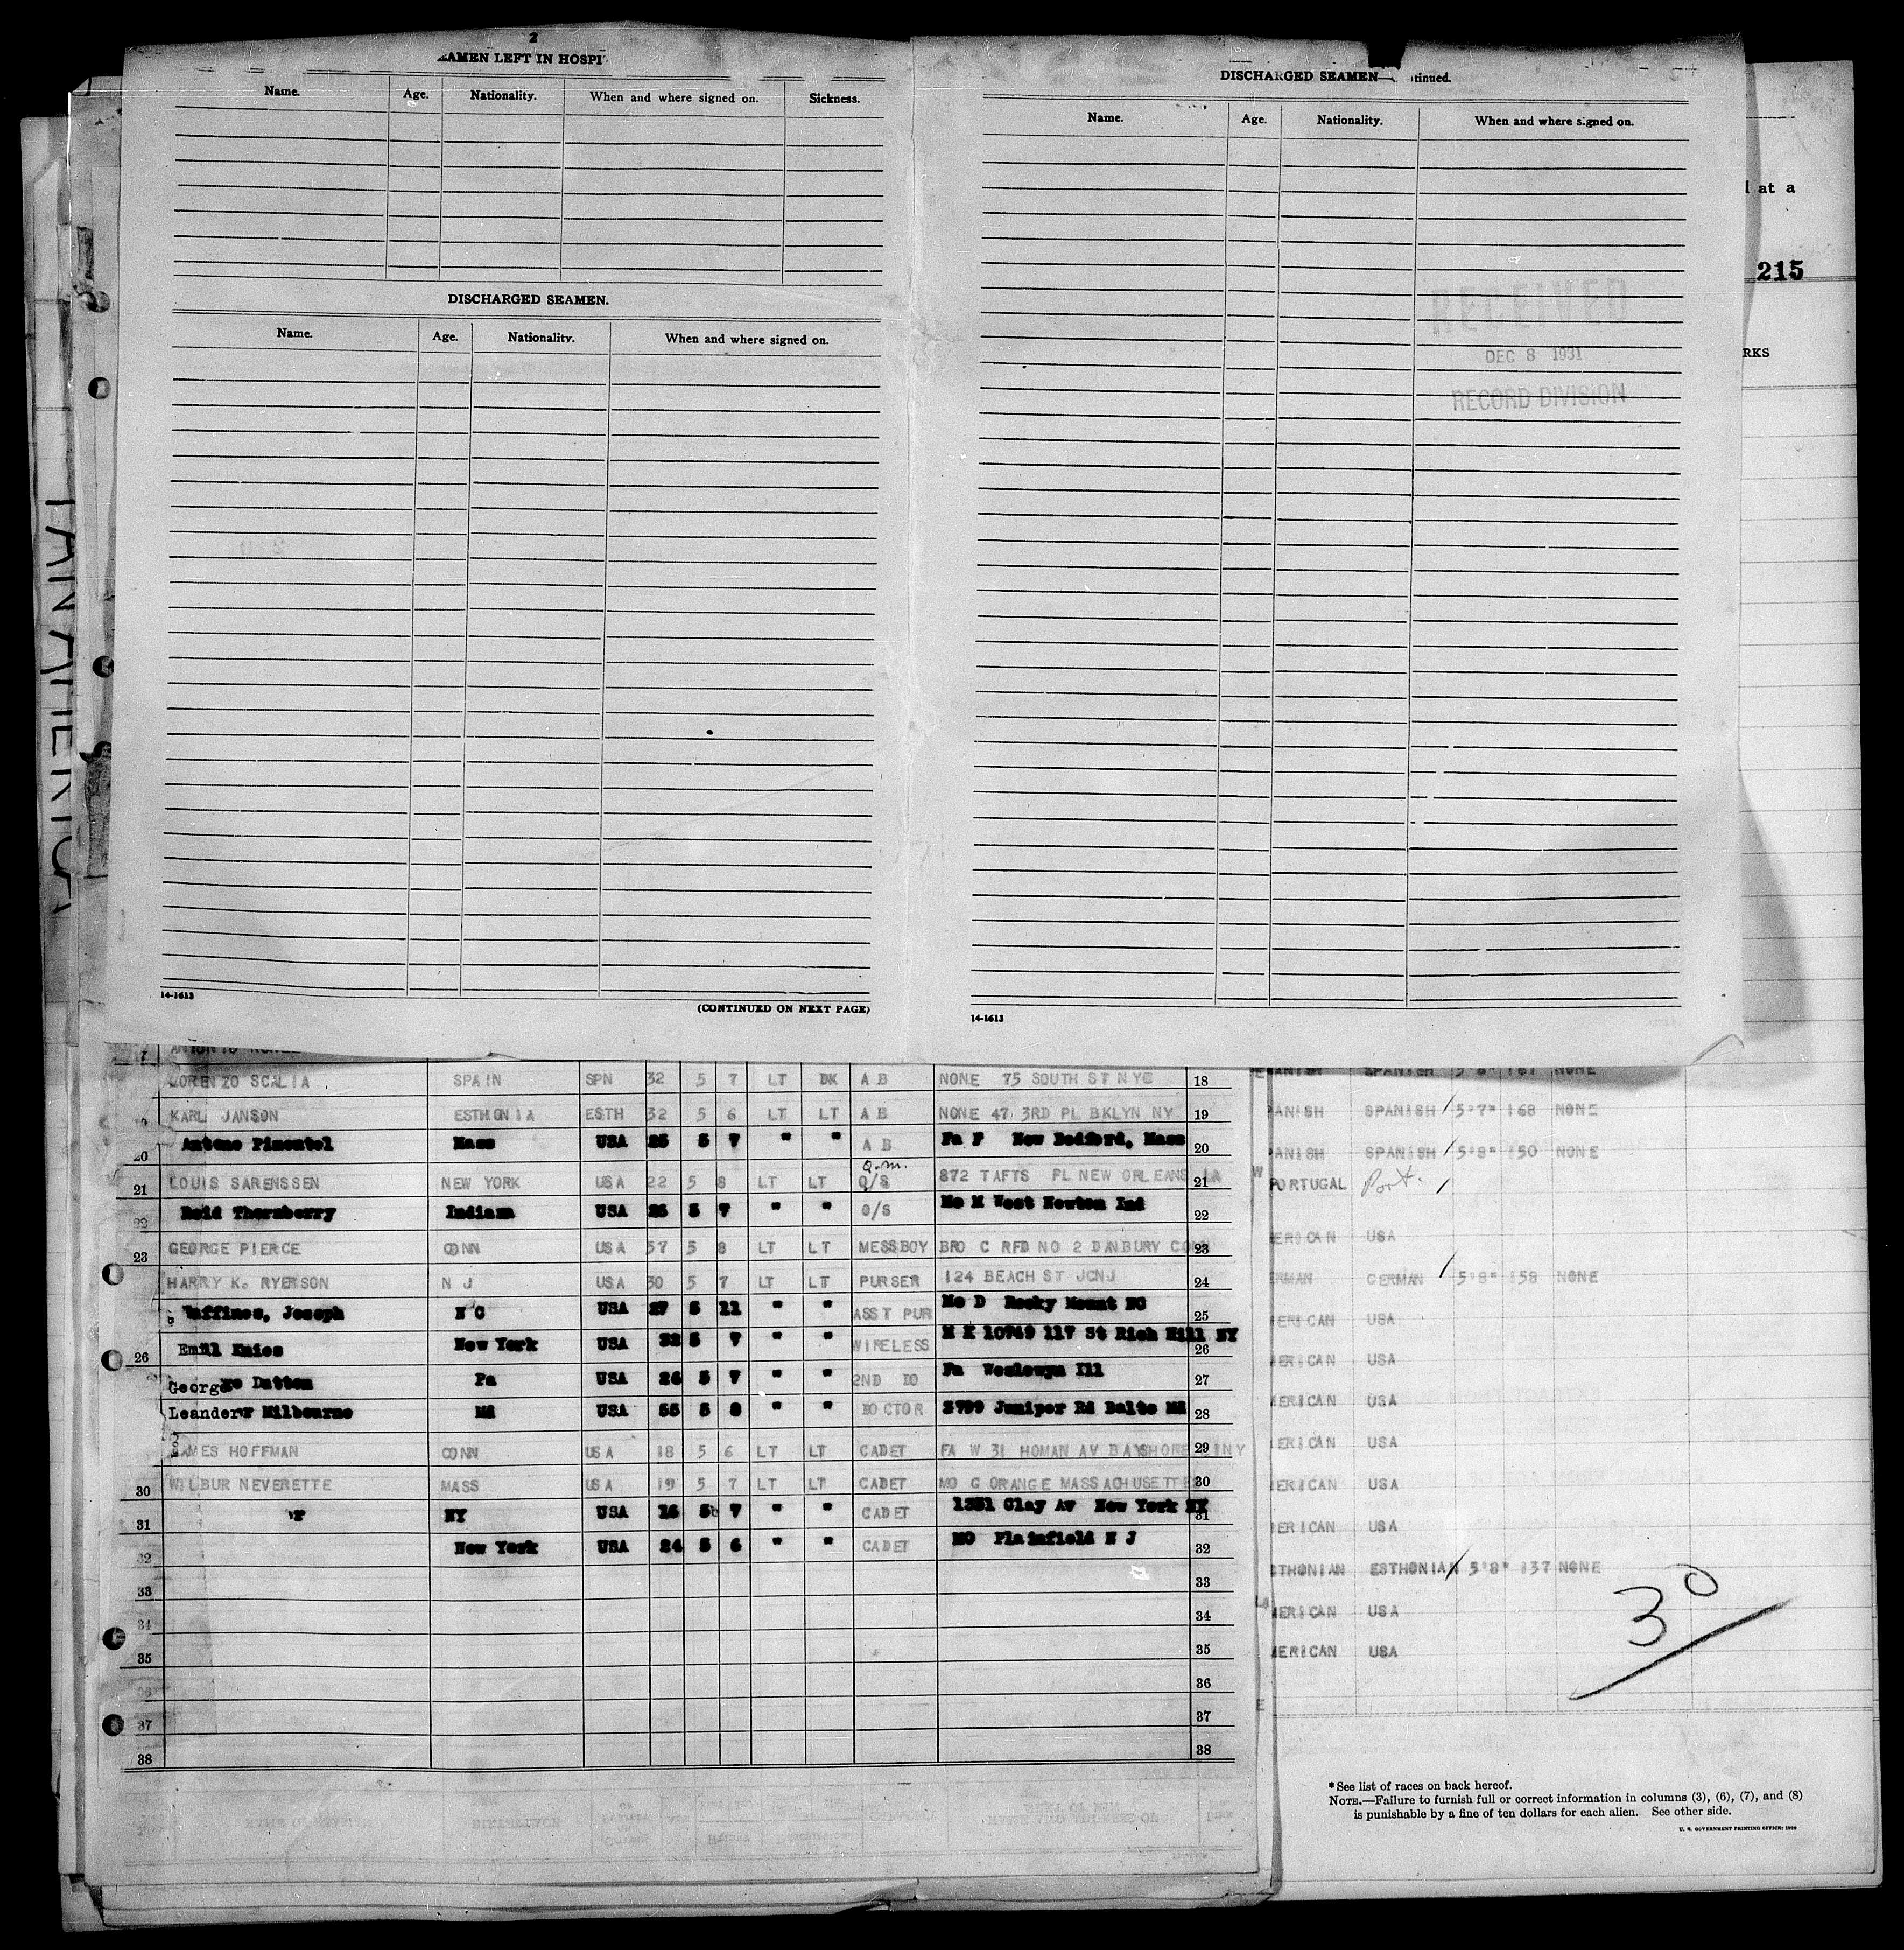 2
SEAMEN LEFT IN HOSPI
Name. Age. Nationality. When and where signed on. Sickness.
DISCHARGED SEAMEN.
Name. Age. Nationality. When and where signed on.
14-1613
(CONTINUED ON NEXT PAGE)
DISCHARGED SEAMEN— tinued.
Name. Age. Nationality. When and where signed on.
RECEIVED
DEC 8 1931
RECORD DIVISION
14-1613
at a
215
RKS
LORENZO SCALIA SPAIN SPN 32 5 7 LT DK A B NONE 75 SOUTH ST NYC 18
KARL JANSON ESTHONIA ESTH 32 5 6 LT LT A B NONE 47 3RD PL BKLYN NY 19
20 Antone Pimentel Mass USA 25 5 7 " " A B Fa F New Bedford, Mass 20
Q.M.
21 LOUIS SARENSSEN NEW YORK USA 22 5 8 LT LT O/S 872 TAFTS PL NEW ORLEANS LA 21
22 Reid Thornberry Indiana USA 26 5 7 " " O/S Mo M West Newton Ind 22
23 GEORGE PIERCE CONN USA 57 5 8 LT LT MESSBOY BRO C RFD NO 2 DANBURY CONN 23
HARRY K. RYERSON N J USA 30 5 7 LT LT PURSER 124 BEACH ST JCNJ 24
Joseph N C USA 27 5 11 " " ASST PUR Mo D Rocky Mount NC 25
26 Emil New York USA 32 5 7 " " WIRELESS 117 St Rich Hill NY 26
George Dutton Pa USA 26 5 7 " " 2ND DO Fa Ill 27
Leander Milbourne Md USA 55 5 8 " " DOCTOR 3799 Juniper Rd Balto Md 28
JAMES HOFFMAN CONN USA 18 5 6 LT LT CADET FA W 31 HOMAN AV BAYSHORE LINY 29
30 WILBUR NEVERETTE MASS USA 19 5 7 LT LT CADET MO G ORANGE MASSACHUSETTES 30
31 NY USA 16 5 7 " " CADET 1351 Clay Av New York NY 31
32 New York USA 24 5 6 " " CADET MO Plainfield N J 32
33 33
34 34
35 35
36 36
37 37
38 38
ANISH SPANISH 5'8" 167 NONE
ANISH SPANISH / 5'7" 168 NONE
ANISH SPANISH / 5'8" 150 NONE
PORTUGAL Port. /
ERICAN USA
ERMAN GERMAN / 5'8" 158 NONE
ERICAN USA
ERICAN USA
ERICAN USA
ERICAN USA
ERICAN USA
ERICAN USA
STHONIAN ESTHONIAN / 5'8" 137 NONE
MERICAN USA
MERICAN USA
30
*See list of races on back hereof.
NOTE.—Failure to furnish full or correct information in columns (3), (6), (7), and (8)
is punishable by a fine of ten dollars for each alien. See other side.
U. S. GOVERNMENT PRINTING OFFICE: 1929